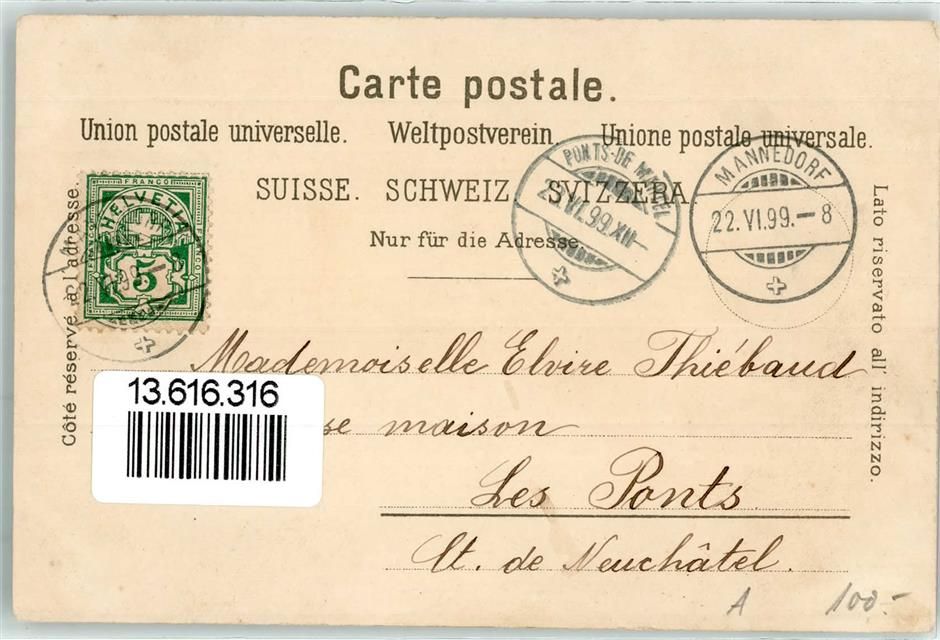 Carte postale.
Union postale universelle. Weltpostverein. Unione postale universale.
SUISSE. SCHWEIZ. SVIZZERA.
Nur für die Adresse.
Côté réservé à l'adresse.
Lato riservato all' indirizzo.
FRANCO
HELVETIA
FRANCO
5
PONTS-DE-MARTEL
22.VI.99.XII-
MÄNNEDORF
22.VI.99.-8
Mademoiselle Elvire Thiébaud
se maison
Les Ponts.
Ct. de Neuchâtel.
13.616.316
A 100.-